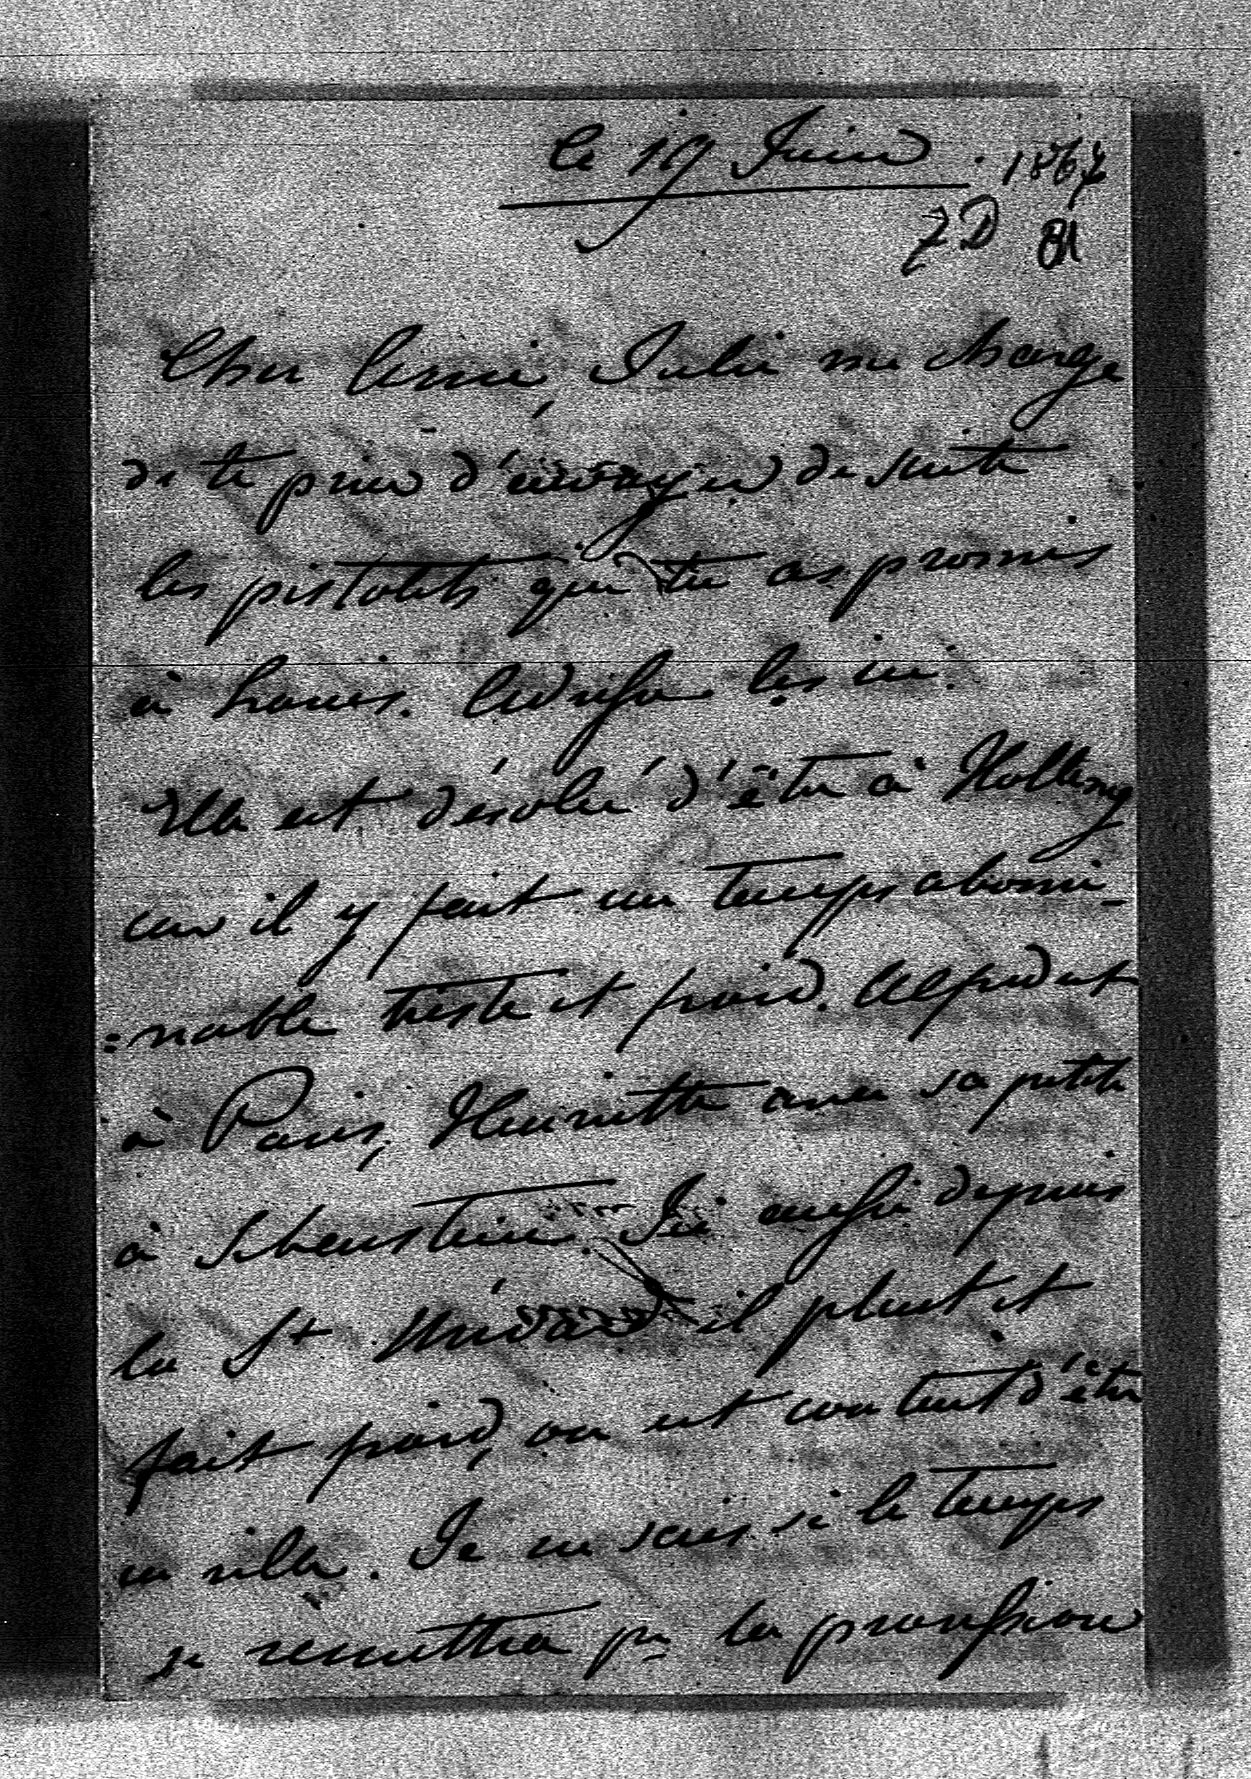 le 19 Juin . 1867
7D 81
Cher Ami, Julie me charge
de te prier d'envoyer de suite
les pistolets que tu as promis
à Louis. Adresse les ici.
Elle est désolée d'être à
car il y fait un temps abomi-
=nable triste et froid. Alfred est
à Paris, Henriette avec sa petite
à Sebenstein. Ici aussi depuis
la St Médard il pleut et
fait froid, on est content d'être
en ville. Je ne sais si le temps
se remettra pr la procession